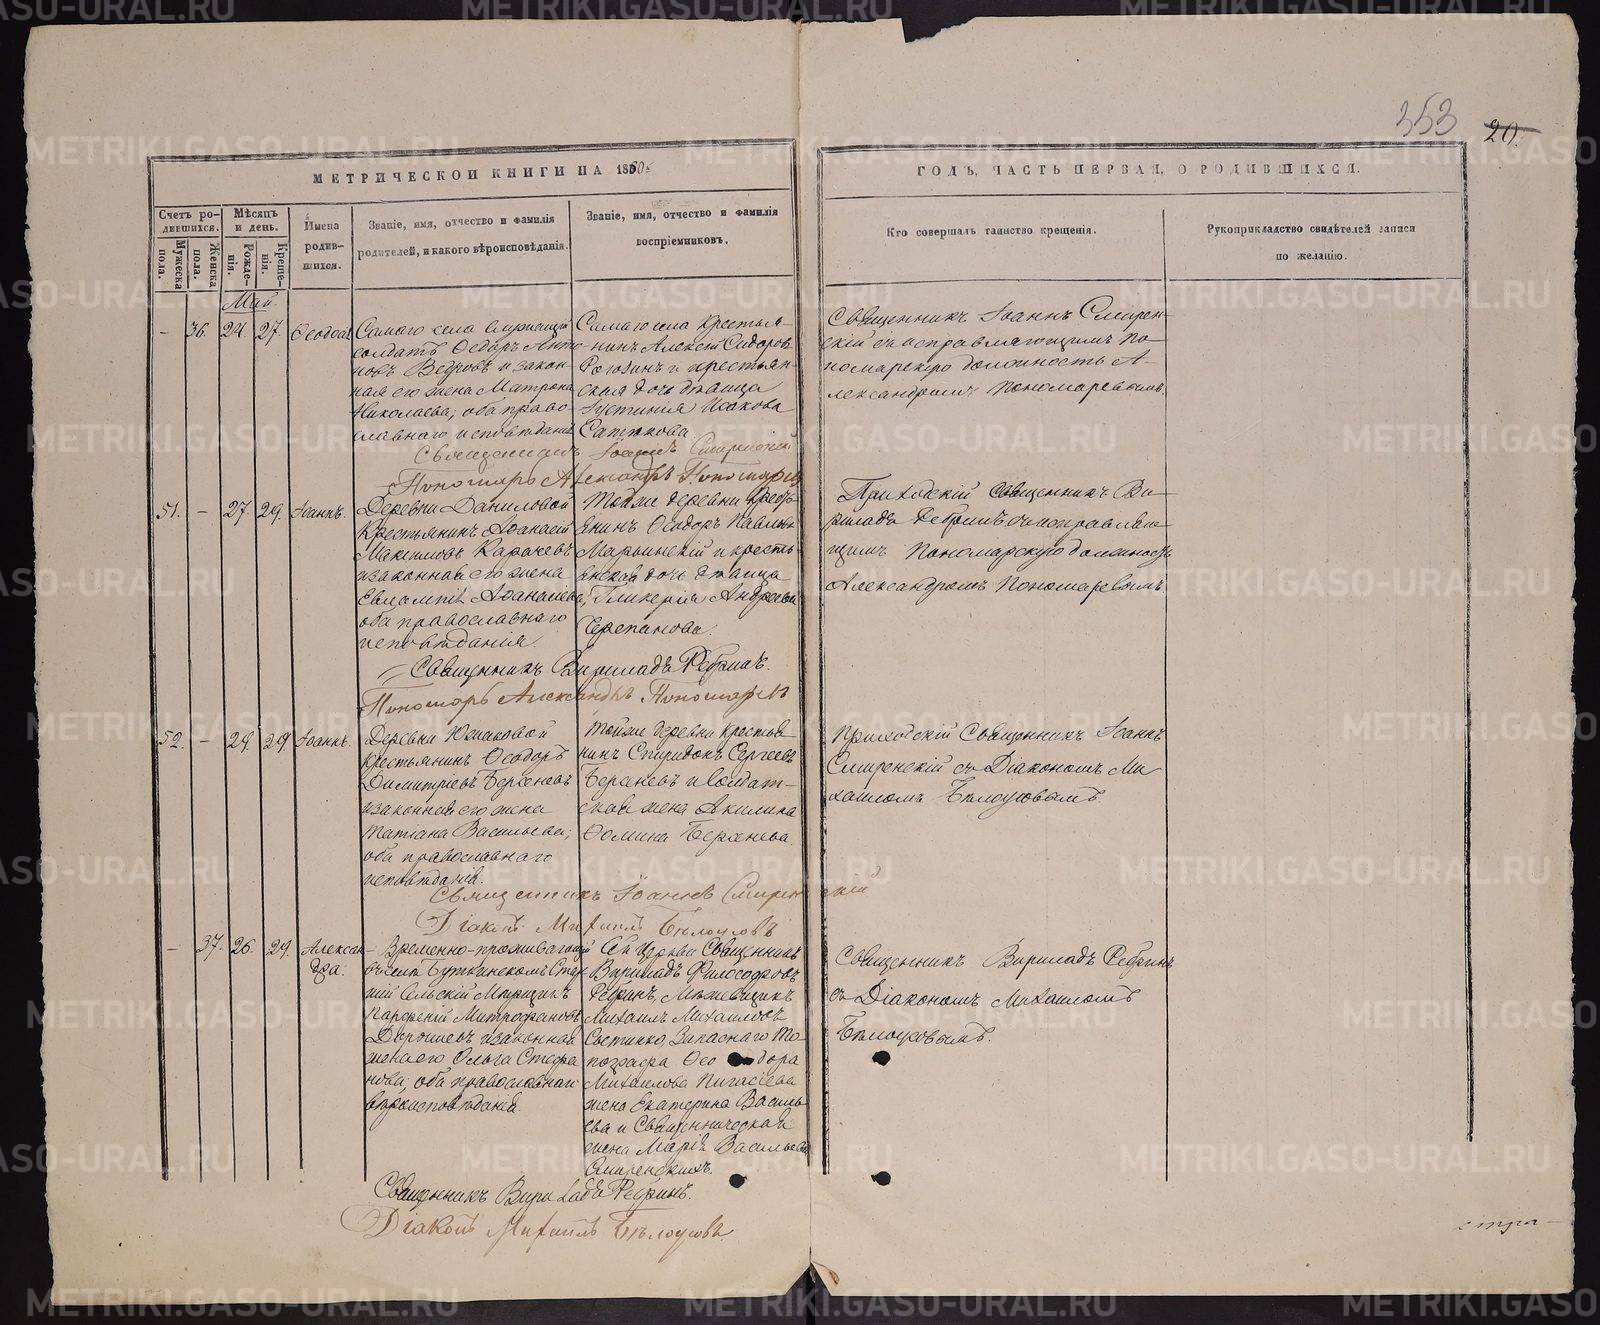 353
20.
МЕТРИЧЕСКОЙ КНИГИ НА 1860й
ГОДЪ, ЧАСТЬ ПЕРВАЯ, О РОДИВШИХСЯ.
Счетъ ро-
дившихся.
Мужеска
пола.
Женска
пола.
Мѣсяцъ
и день.
Рожде-
нія.
Креще-
нія.
Имена
родив-
шихся.
Званіе, имя, отчество и фамилія
родителей, и какого вѣроисповѣданія.
Званіе, имя, отчество и фамилія
воспріемниковъ.
Кто совершалъ таинство крещенія.
Рукоприкладство свидѣтелей записи
по желанію.
Май.
–
36.
24.
27.
Самаго села
солдатъ Ѳедоръ Анто-
новъ Ведровъ и закон-
ная его жена Матрона
Николаева; оба право-
славнаго исповѣданія
Самаго села крестья-
нинъ Алексѣй Сидоровъ
Рогозинъ и крестьян-
ская дочь дѣвица
Іустинія Исакова
Священникъ Іоаннъ Смирен-
скій съ исправляющимъ по-
номарскую должность А-
лександромъ Пономаревымъ.
Священникъ Іоаннъ Смиренскій
Пономарь Александръ Пономаревъ
51.
–
27.
29.
Іоаннъ.
Деревни Даниловой
крестьянинъ Аѳанасій
Максимовъ Карачевъ
и законная его жена
Евлампія Аѳанасіева;
оба православнаго
исповѣданія.
Тойже деревни крестья-
янинъ Ѳеодоръ Павловъ
Марьинскій и кресть-
янская дочь дѣвица
Гликерія Андреева
Черепанова.
Приходскій священникъ Ви-
риладъ Ребринъ съ исправляю-
щимъ пономарскую должность
Александромъ Пономаревымъ.
Священникъ Вириладъ Ребринъ.
Пономарь Александръ Пономаревъ
52.
–
29.
29
Іоаннъ.
Деревни Южаковой
крестьянинъ Ѳеодоръ
Димитріевъ Берсеневъ
и законная его жена
Татіана Васильева;
оба православнаго
исповѣданія.
Тойже деревни крестья-
нинъ Спиридонъ Сергеевъ
Берсеневъ и солдат-
ская жена Акилина
Ѳомина Берсенева.
Приходскій Священникъ Іоаннъ
Смиренскій съ Діакономъ Ми-
хаиломъ Бѣлоусовымъ.
Священникъ Іоаннъ Смиренскій
Діаконъ Михаилъ Бѣлоусовъ
–
37.
26.
29.
Алексан-
дра.
Временно-проживающій
въ селѣ Буткинскомъ
Сельскій
Митрофановъ
и законная
жена его Ольга Стефа-
нова; оба православнаго
вѣроисповѣданія.
Сей Церкви Священникъ
Вириладъ Философовъ
Ребринъ,
Михаилъ Михаиловъ
Запаснаго То-
пографа Ѳеодора
Михаилова Пигасіева
жена Екатерина Василь-
ева и Священническая
жена Марія Васильева
Смиренскихъ.
Священникъ Вириладъ Ребринъ
съ Діакономъ Михаиломъ
Бѣлоусовымъ.
Священникъ Вириладъ Ребринъ.
Діаконъ Михаилъ Бѣлоусовъ.
стра-
METRIKI.GASO-URAL.RU